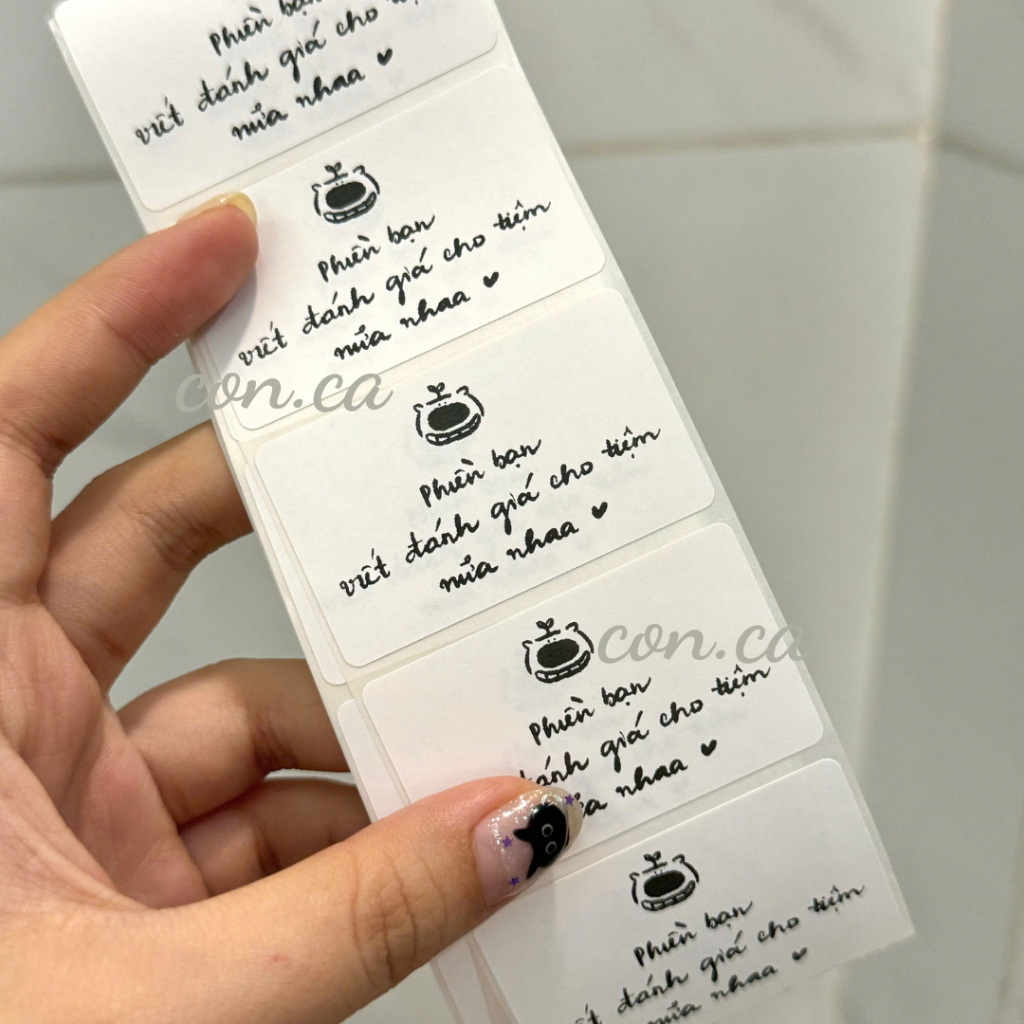 Phiền bạn
viết đánh giá cho tiệm
nữa nhaa
Phiền bạn
viết đánh giá cho tiệm
nữa nhaa
con.ca
Phiền bạn
viết đánh giá cho tiệm
nữa nhaa
con.ca
Phiền bạn
đánh giá cho tiệm
nhaa
Phiền bạn
viết đánh giá cho tiệm
nữa nhaa